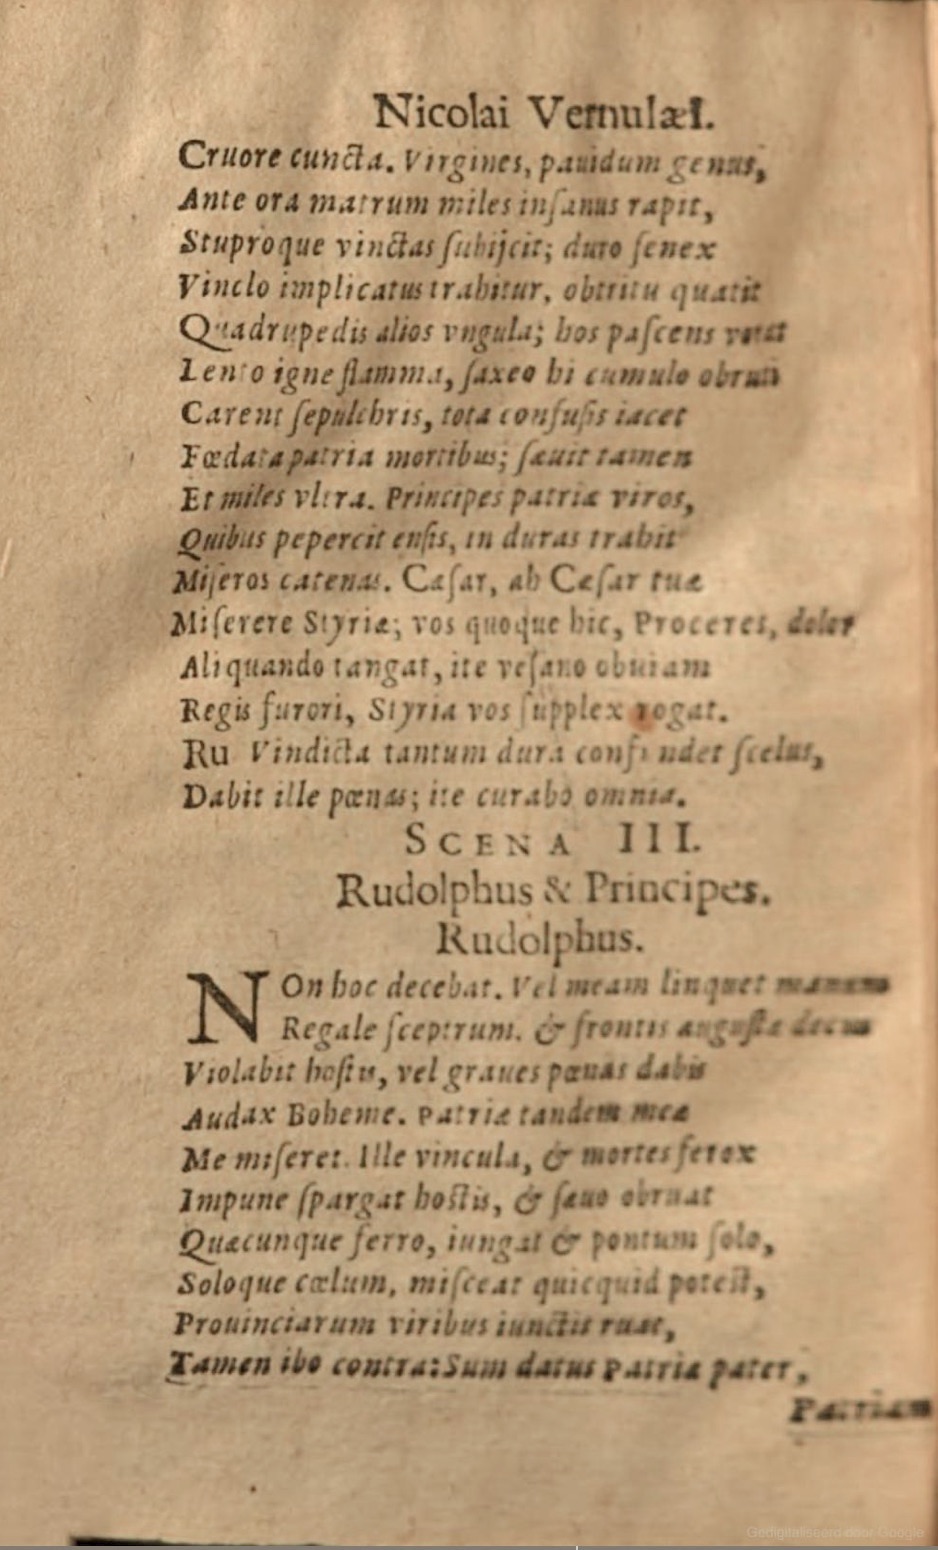 Nicolai Vernulæi.
Cruore cuncta. Virgines, pauidum genus,
Ante ora matrum miles insanus rapit,
Stuproque vinctas subijcit; duro senex
Vinclo implicatus trahitur, obtritu quatit
Quadrupedis alios vngula; hos pascens vorat
Lento igne flamma, saxeo hi cumulo obruti
Carent sepulchris, tota confusis iacet
Fœdata patria mortibus; sæuit tamen
Et miles vltra. Principes patriæ viros,
Quibus pepercit ensis, in duras trahit
Miseros catenas. Cæsar, ah Cæsar tuæ
Miserere Styriæ; vos quoque hic, Proceres, dolor
Aliquando tangat, ite vesano obuiam
Regis furori, Styria vos supplex rogat.
Ru Vindicta tantum dura confundet scelus,
Dabit ille pœnas; ite curabo omnia.
SCENA III.
Rudolphus & Principes.
Rudolphus.
NOn hoc decebat. Vel meam linquet manum
Regale sceptrum. & frontis augustæ decus
Violabit hostis, vel graues pœnas dabis
Audax Boheme. Patriæ tandem meæ
Me miseret. Ille vincula, & mortes ferox
Impune spargat hostis, & sæuo obruat
Quæcunque ferro, iungat & pontum solo,
Soloque cœlum, misceat quicquid potest,
Prouinciarum viribus iunctis ruat,
Tamen ibo contra: Sum datus Patriæ pater,
Patriam
Gedigitaliseerd door Google